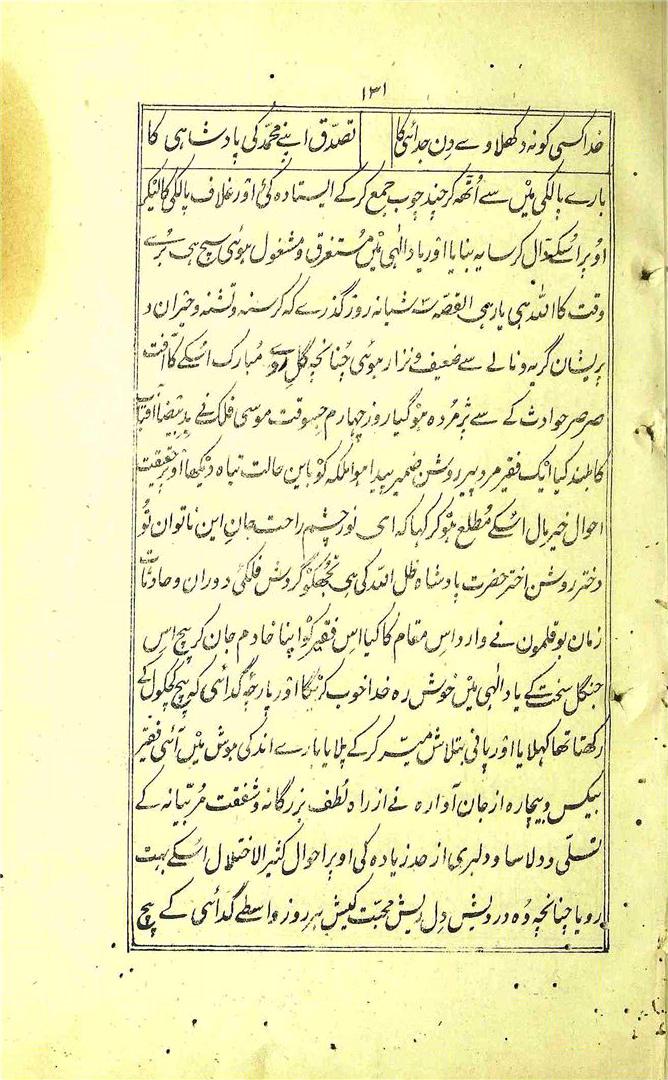 ۱۳۱
خدا کسی کو نہ دکھلاوے دن جدائی کا تصدّق اپنے محمّد کی بادشاہی کا
بارے پالکی مین سے اُٹھہ کر چند چوب جمع کر کے ایستادہ کی اور غلاف پالکی کا لیکر
اوپر اسکے ڈال کر سایہ بنایا اور یاد الٰہی مین مستغرق و مشغول ہوئی سچ ہی بُرے
وقت کا اللہ ہی یار ہی القصہ ۳ شبانہ روز گذرے کہ گرسنہ و تشنہ و حیران و
پریشان گریہ و نالے سے ضعیف و نزار ہوئی چنانچہ گل روے مُبارک اسکے کا آفت
صرصر حوادث کے سے پژمُردہ ہو گیا روز چہارم جسوقت موسی فلک نے ید بیضا آفتاب
کا بلند کیا ایک فقیر مرد پیر روشن ضمیر پیدا ہوا ملکہ کو باین حالت تباہ دیکھا اور حقیقت
احوال خیر مال اسکے مُطلع ہو کر کہا کہ ای نور چشم راحت جان این ناتوان تُو
دختر روشن اختر حضرت بادشاہ ظل اللہ کی ہی تجھکو گردش فلکی دوران و حادثات
زمان بوقلمون نے وارد اس مقام کا کیا اس فقیر کو اپنا خادم جان کر بیچ اس
جنگل سخت کے یاد الٰہی مین خوش رہ خدا خوب کریگا اور پارچۂ گدائی کہ بیچ کچکول کے
رکھتا تھا کہلایا اور پانی بتلاش میسّر کر کے پلایا بارے اندکی ہوش مین آئی فقیر
بیکس و بیچارہ از جان آوارہ نے از راہ لُطف بزرگانہ و شفقت مربّیانہ کے
تسلّی و دلاسا و دلبری از حد زیادہ کی اوپر احوال کثیر الاختلال اسکے بہت
رویا چنانچہ وُہ درویش دل ریش محبّت کیش ہر روز واسطے گدائی کے بیچ